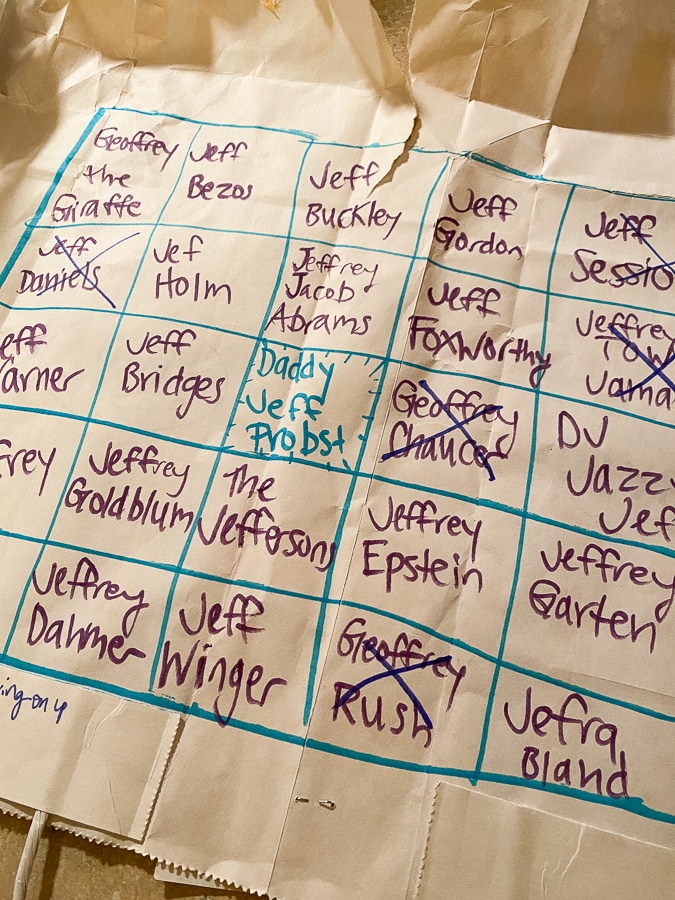 Geoffrey
the
Giraffe
Jeff
Bezos
Jeff
Buckley
Jeff
Gordon
Jeff
Sessio
Jeff
Daniels
Jef
Holm
Jeffrey
Jacob
Abrams
Jeff
Foxworthy
Jeffrey
eff
Varner
Jeff
Bridges
Daddy
Jeff
Probst
Geoffrey
Chaucer
DJ
Jazzy
Jef
frey
Jeffrey
Goldblum
The
Jeffersons
Jeffrey
Epstein
Jeffrey
Garten
Jeffrey
Dahmer
Jeff
Winger
Geoffrey
Rush
Jefra
Bland
ving on up